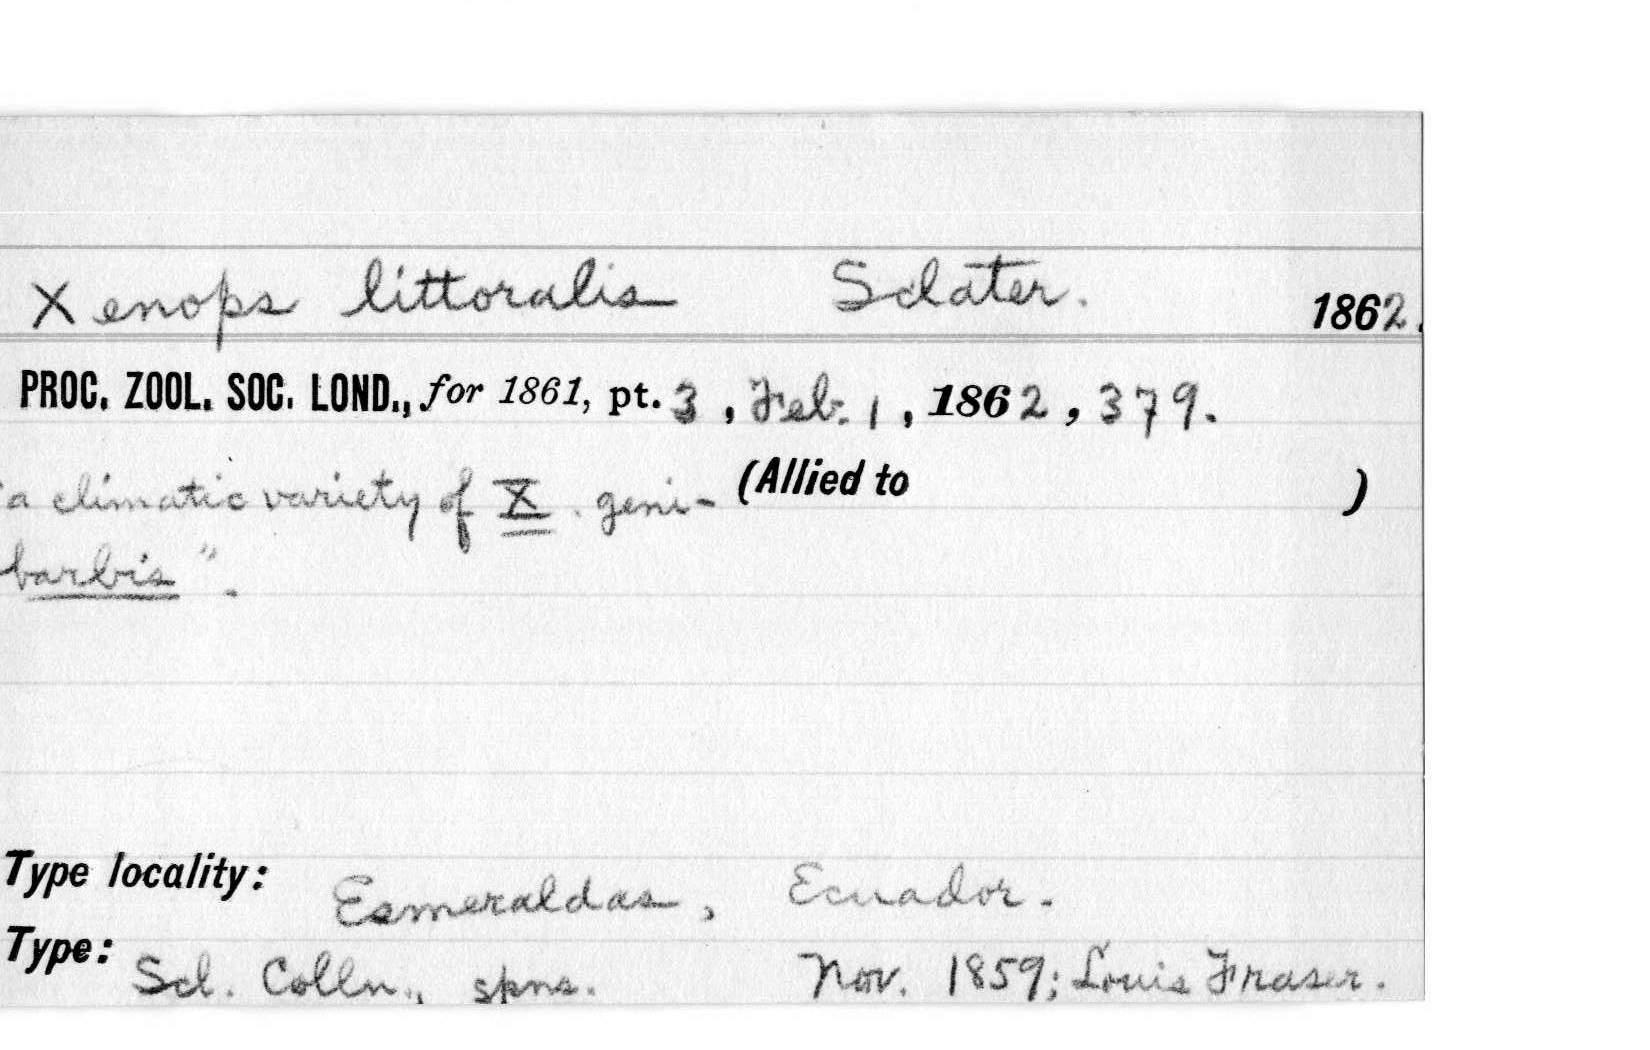 Xenops littoralis Sclater. 1862.
PROC. ZOOL. SOC. LOND., for 1861, pt. 3, Feb. 1, 1862, 379.
"a climatic variety of X. geni- (Allied to )
barbis".
Type locality: Esmeraldas, Ecuador.
Type: Scl. Colln., spns. Nov. 1859; Louis Fraser.